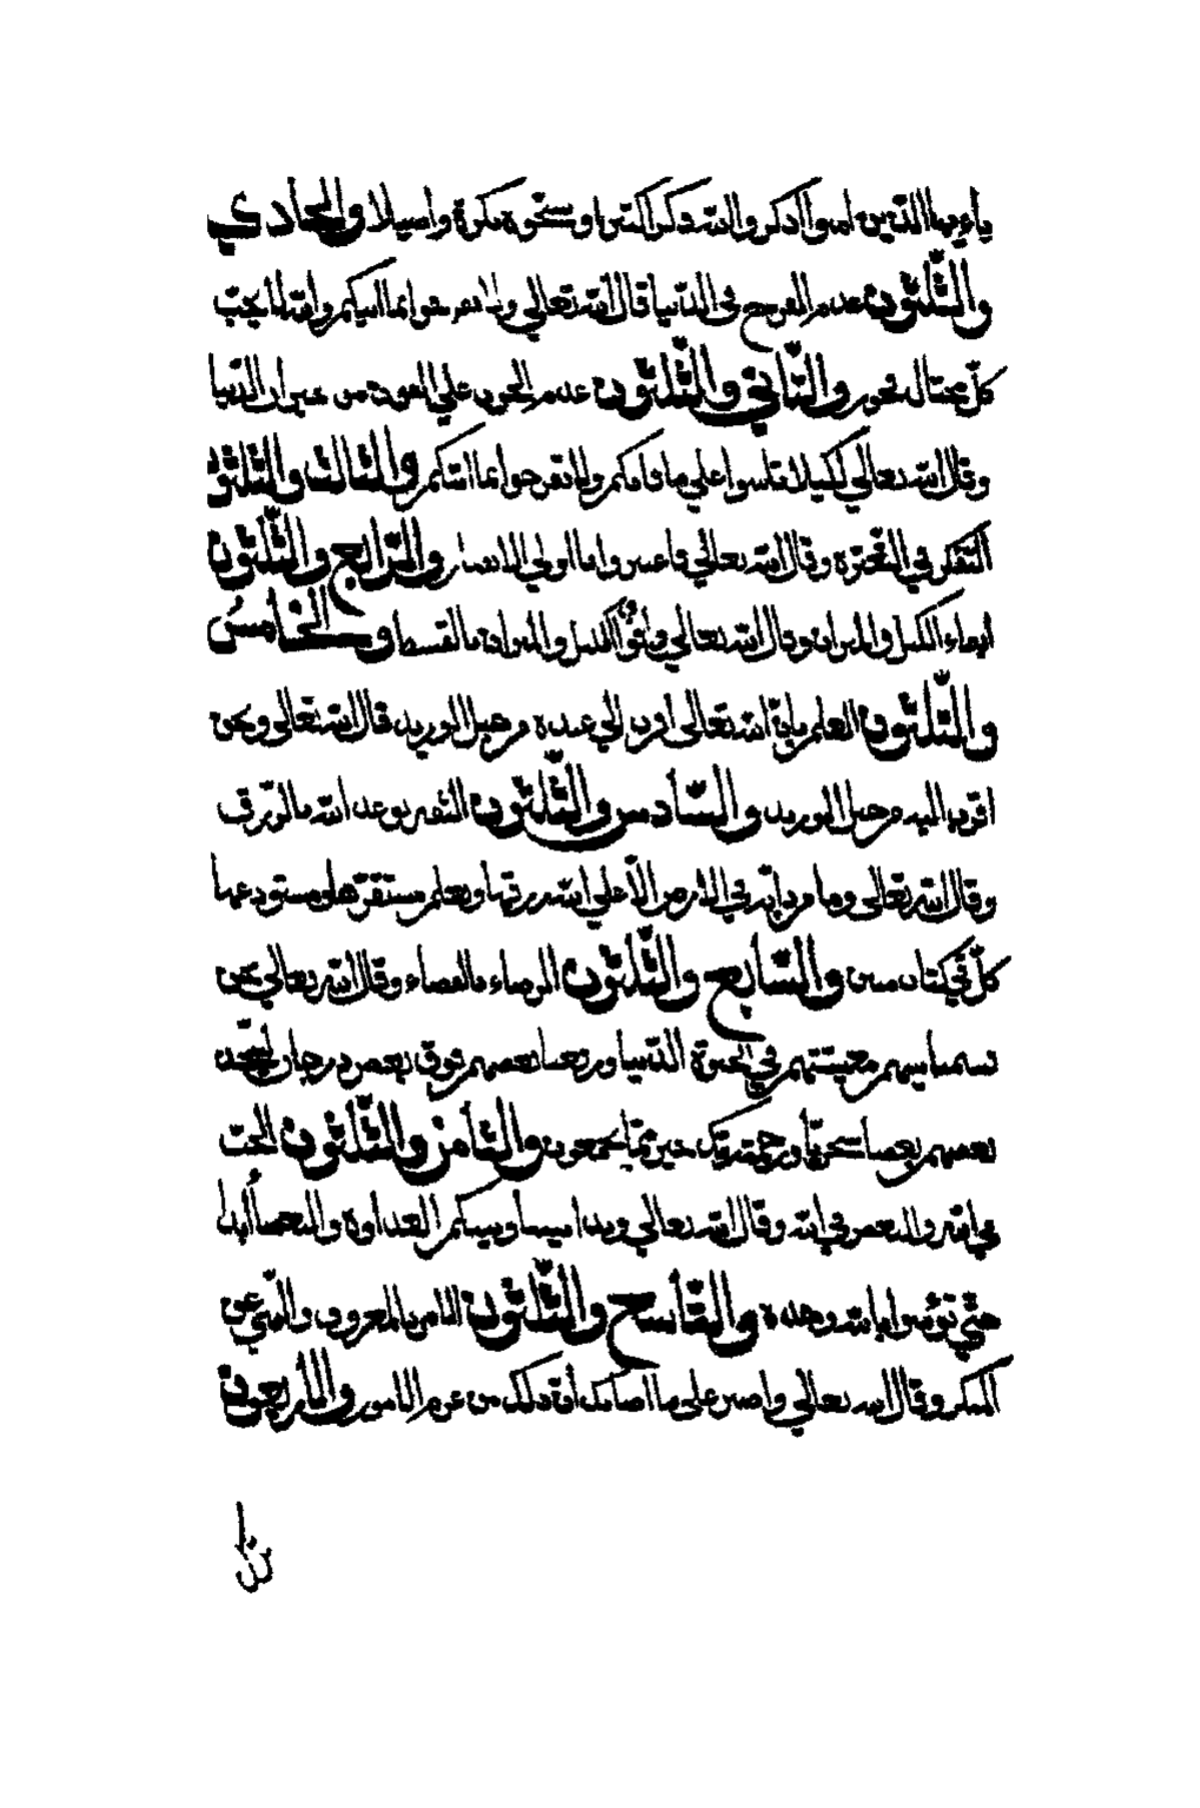 يأءيها الذين امنوا اذكروا الله ذكرا كثيرا وسبحوه بكرة واصيلا والحادي
والثلثون عدم الفرح في الدنيا قال الله تعالي ولا تفرحوا بما اتيكم والله لا يحب
كل مختال فخور والثاني والثلثون عدم الحزن علي الفوت من الدنيا
وقال الله تعالي لكيلا تاسوا علي ما فاتكم ولا تفرحوا بما اتاكم والثالث والثلثون
التفكر في وقال الله تعالي فاعتبروا يا اولي الابصار والرابع والثلثون
ايفاء الكيل والميزان وقال الله تعالي واوفوا الكيل والميزان بالقسط والخامس
والثلثون العلم بان الله تعالى اقرب الي عبده من حبل الوريد قال الله تعالى ونحن
اقرب اليه من حبل الوريد والسادس والثلثون الثقة بوعد الله بالرزق
وقال الله تعالى وما من دابة في الارض الا علي الله رزقها ويعلم مستقرها ومستودعها
كل في كتاب مبين والسابع والثلثون الرضاء بالقضاء وقال الله تعالي نحن
قسمنا بينهم معيشتهم في الحيوة الدنيا ورفعنا بعضهم فوق بعض درجات ليتخذ
بعضهم بعضا سخريا ورحمة ربك خير مما يجمعون والثامن والثلثون الحب
في الله والبغض في الله وقال الله تعالي وبدا بيننا وبينكم العداوة والبغضاء ابدا
حتي تؤمنوا بالله وحده والتاسع والثلثون الامر بالمعروف والنهي عن
المنكر وقال الله تعالي واصبر علي ما اصابك ان ذلك من عزم الامور والاربعون